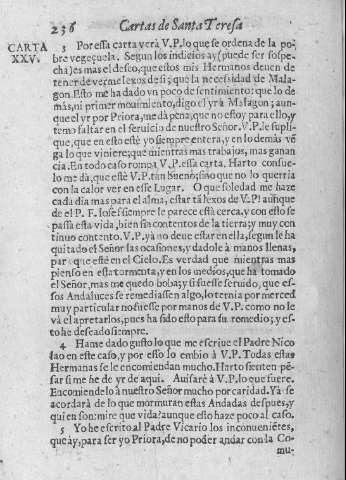 236 Cartas de Santa Teresa
CARTA
XXV.
3 Por essa carta verà V.P. lo que se ordena de la po-
bre vegeçuela. Segun los indicios ay (puede ser sospe-
cha) es mas el deseo, que estos mis Hermanos deuen de
tener de verme lexos de si; que la necessidad de Mala-
gon. Esto me ha dado vn poco de sentimiento: que lo de
màs, ni primer mouimiento, digo el yr à Malagon; aun-
que el yr por Priora, me dà pena, que no estoy para ello, y
temo faltar en el seruicio de nuestro Señor. V.P. le supli-
que, que en esto estè yo siempre entera, y en lo demàs vẽ
ga lo que viniere; que mientras mas trabajos, mas ganan
cia. En todo caso rompa V.P. essa carta. Harto consue-
lo me dà, que estè V.P. tan bueno; sino que no lo querria
con la calor ver en esse Lugar. O que soledad me haze
cada dia mas para el alma, estar tã lexos de V.P! aunque
de el P. F. Iosef siempre le parece està cerca, y con esto se
passa esta vida, bien sin contentos de la tierra, y muy con
tinuo contento. V.P. ya no deue estar en ella, segun le ha
quitado el Señor las ocasiones, y dadole à manos llenas,
para que estè en el Cielo. Es verdad que mientras mas
pienso en esta tormenta, y en los medios, que ha tomado
el Señor, mas me quedo boba; y si fuesse seruido, que es-
sos Andaluces se remediassen algo, lo ternia por merced
muy particular no fuesse por manos de V.P. como no le
và el apretarlos, pues ha sido esto para su remedio; y es-
to he deseado siempre.
4 Hame dado gusto lo que me escriue el Padre Nico
lao en este caso, y por esso lo embio à V.P. Todas estas
Hermanas se le encomiendan mucho. Harto sienten pẽ-
sar si me he de yr de aqui. Auisarè à V.P. lo que fuere.
Encomiendelo à nuestro Señor mucho por caridad. Yà se
acordarà de lo que mormuran estas Andadas despues, y
quien son: mire que vida! aunque esto haze poco al caso.
5 Yo he escrito al Padre Vicario los inconueniẽtes,
que ay, para ser yo Priora, de no poder andar con la Co-
mu-